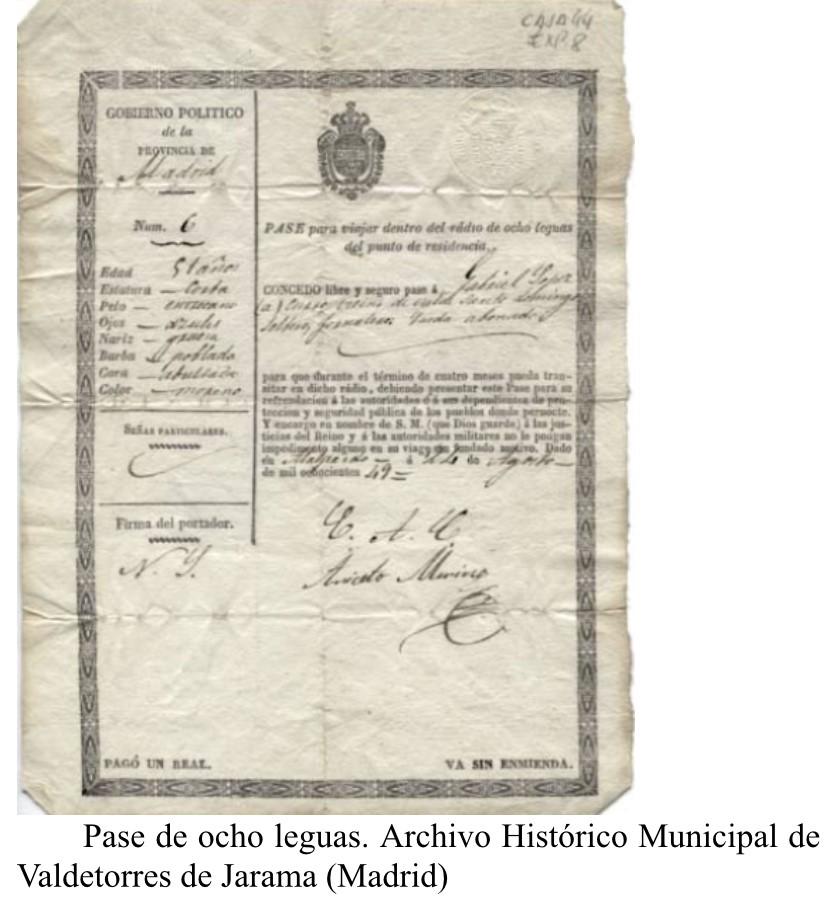 CAJA 44
EXP. 8
GOBIERNO POLITICO
de la
PROVINCIA DE
Madrid
Num. 6
Edad 51 años
Estatura — Corta
Pelo — entrecano
Ojos — azules
Nariz —
Barba poblada
Cara — abultada
Color — moreno
SEÑAS PARTICULARES.
Firma del portador.
N. S.
PASE para viajar dentro del rádio de ocho leguas
del punto de residencia.
CONCEDO libre y seguro pase á Gabriel Lopez
(a) de Santo Domingo
soltero, jornalero abonado
para que durante el término de cuatro meses pueda tran-
sitar en dicho rádio, debiendo presentar este Pase para su
refrendacion á las autoridades ó á sus dependientes de pro-
teccion y seguridad pública de los pueblos donde pernocte.
Y encargo en nombre de S. M. (que Dios guarde) á las jus-
ticias del Reino y á las autoridades militares no le pongan
impedimento alguno en su viage sin fundado motivo. Dado
en á de Agosto
de mil ochocientos 49
E. A. C.
Aniceto Merino
PAGÓ UN REAL.
VA SIN ENMIENDA.
Pase de ocho leguas. Archivo Histórico Municipal de
Valdetorres de Jarama (Madrid)